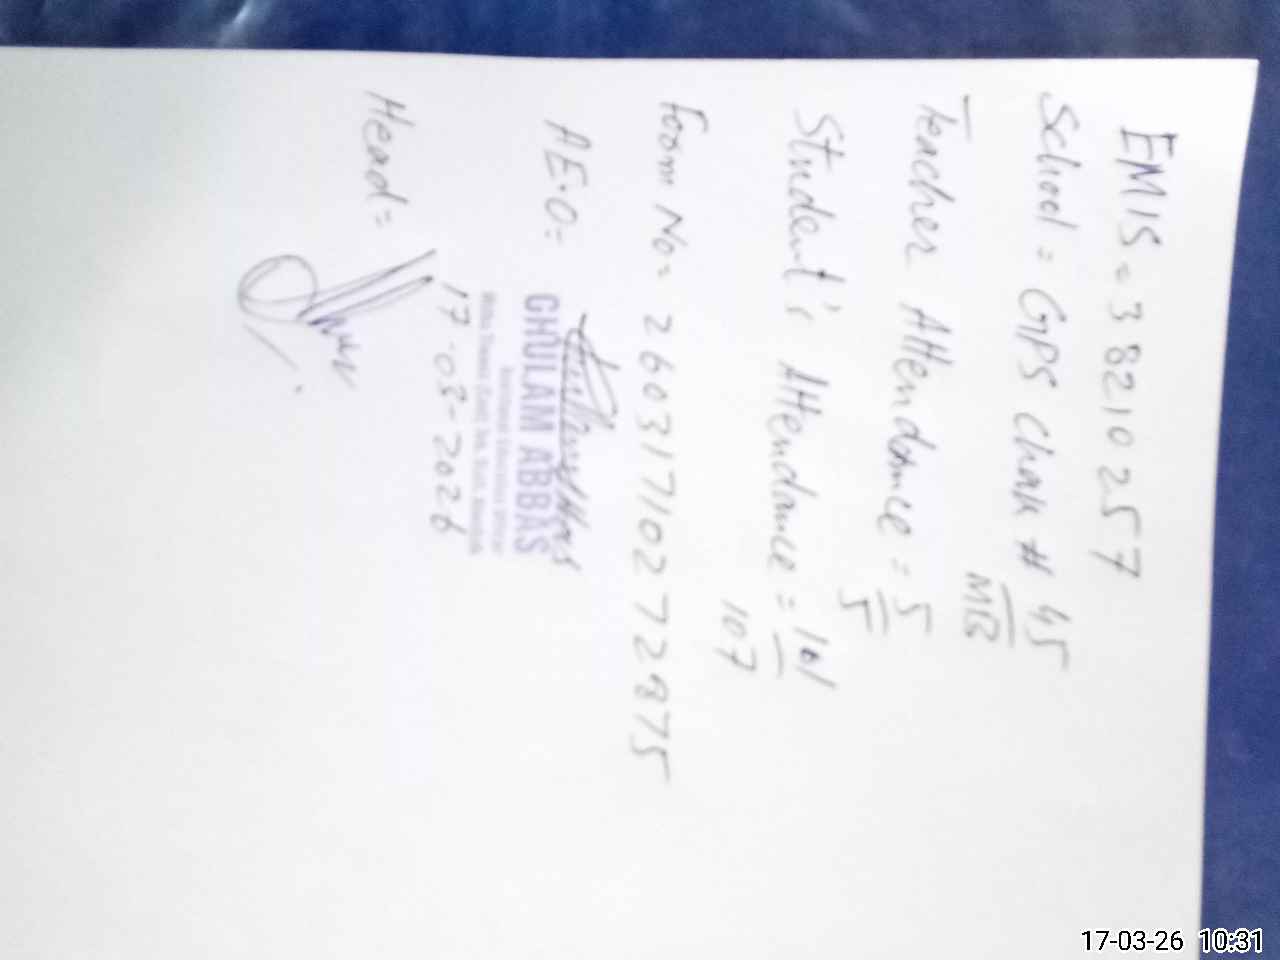 EMIS = 38210257
School = GPS Chak # 45/MB
Teacher Attendance = 5/5
Student's Attendance = 101/107
Form No = 26031710272875
A.E.O =
GHULAM ABBAS
Assistant Education Officer
17-03-2026
Head =
17-03-26 10:31